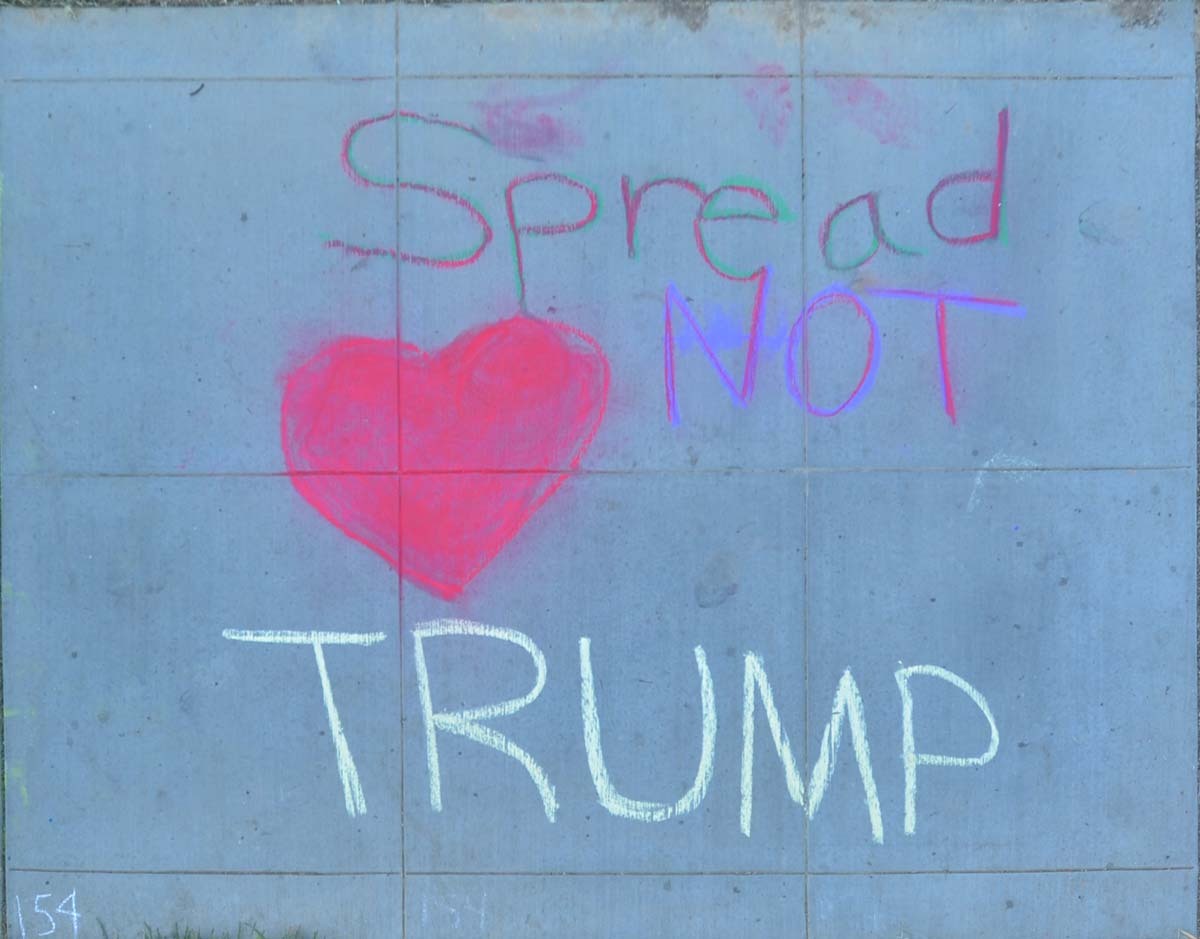 Spread
NOT
TRUMP
154